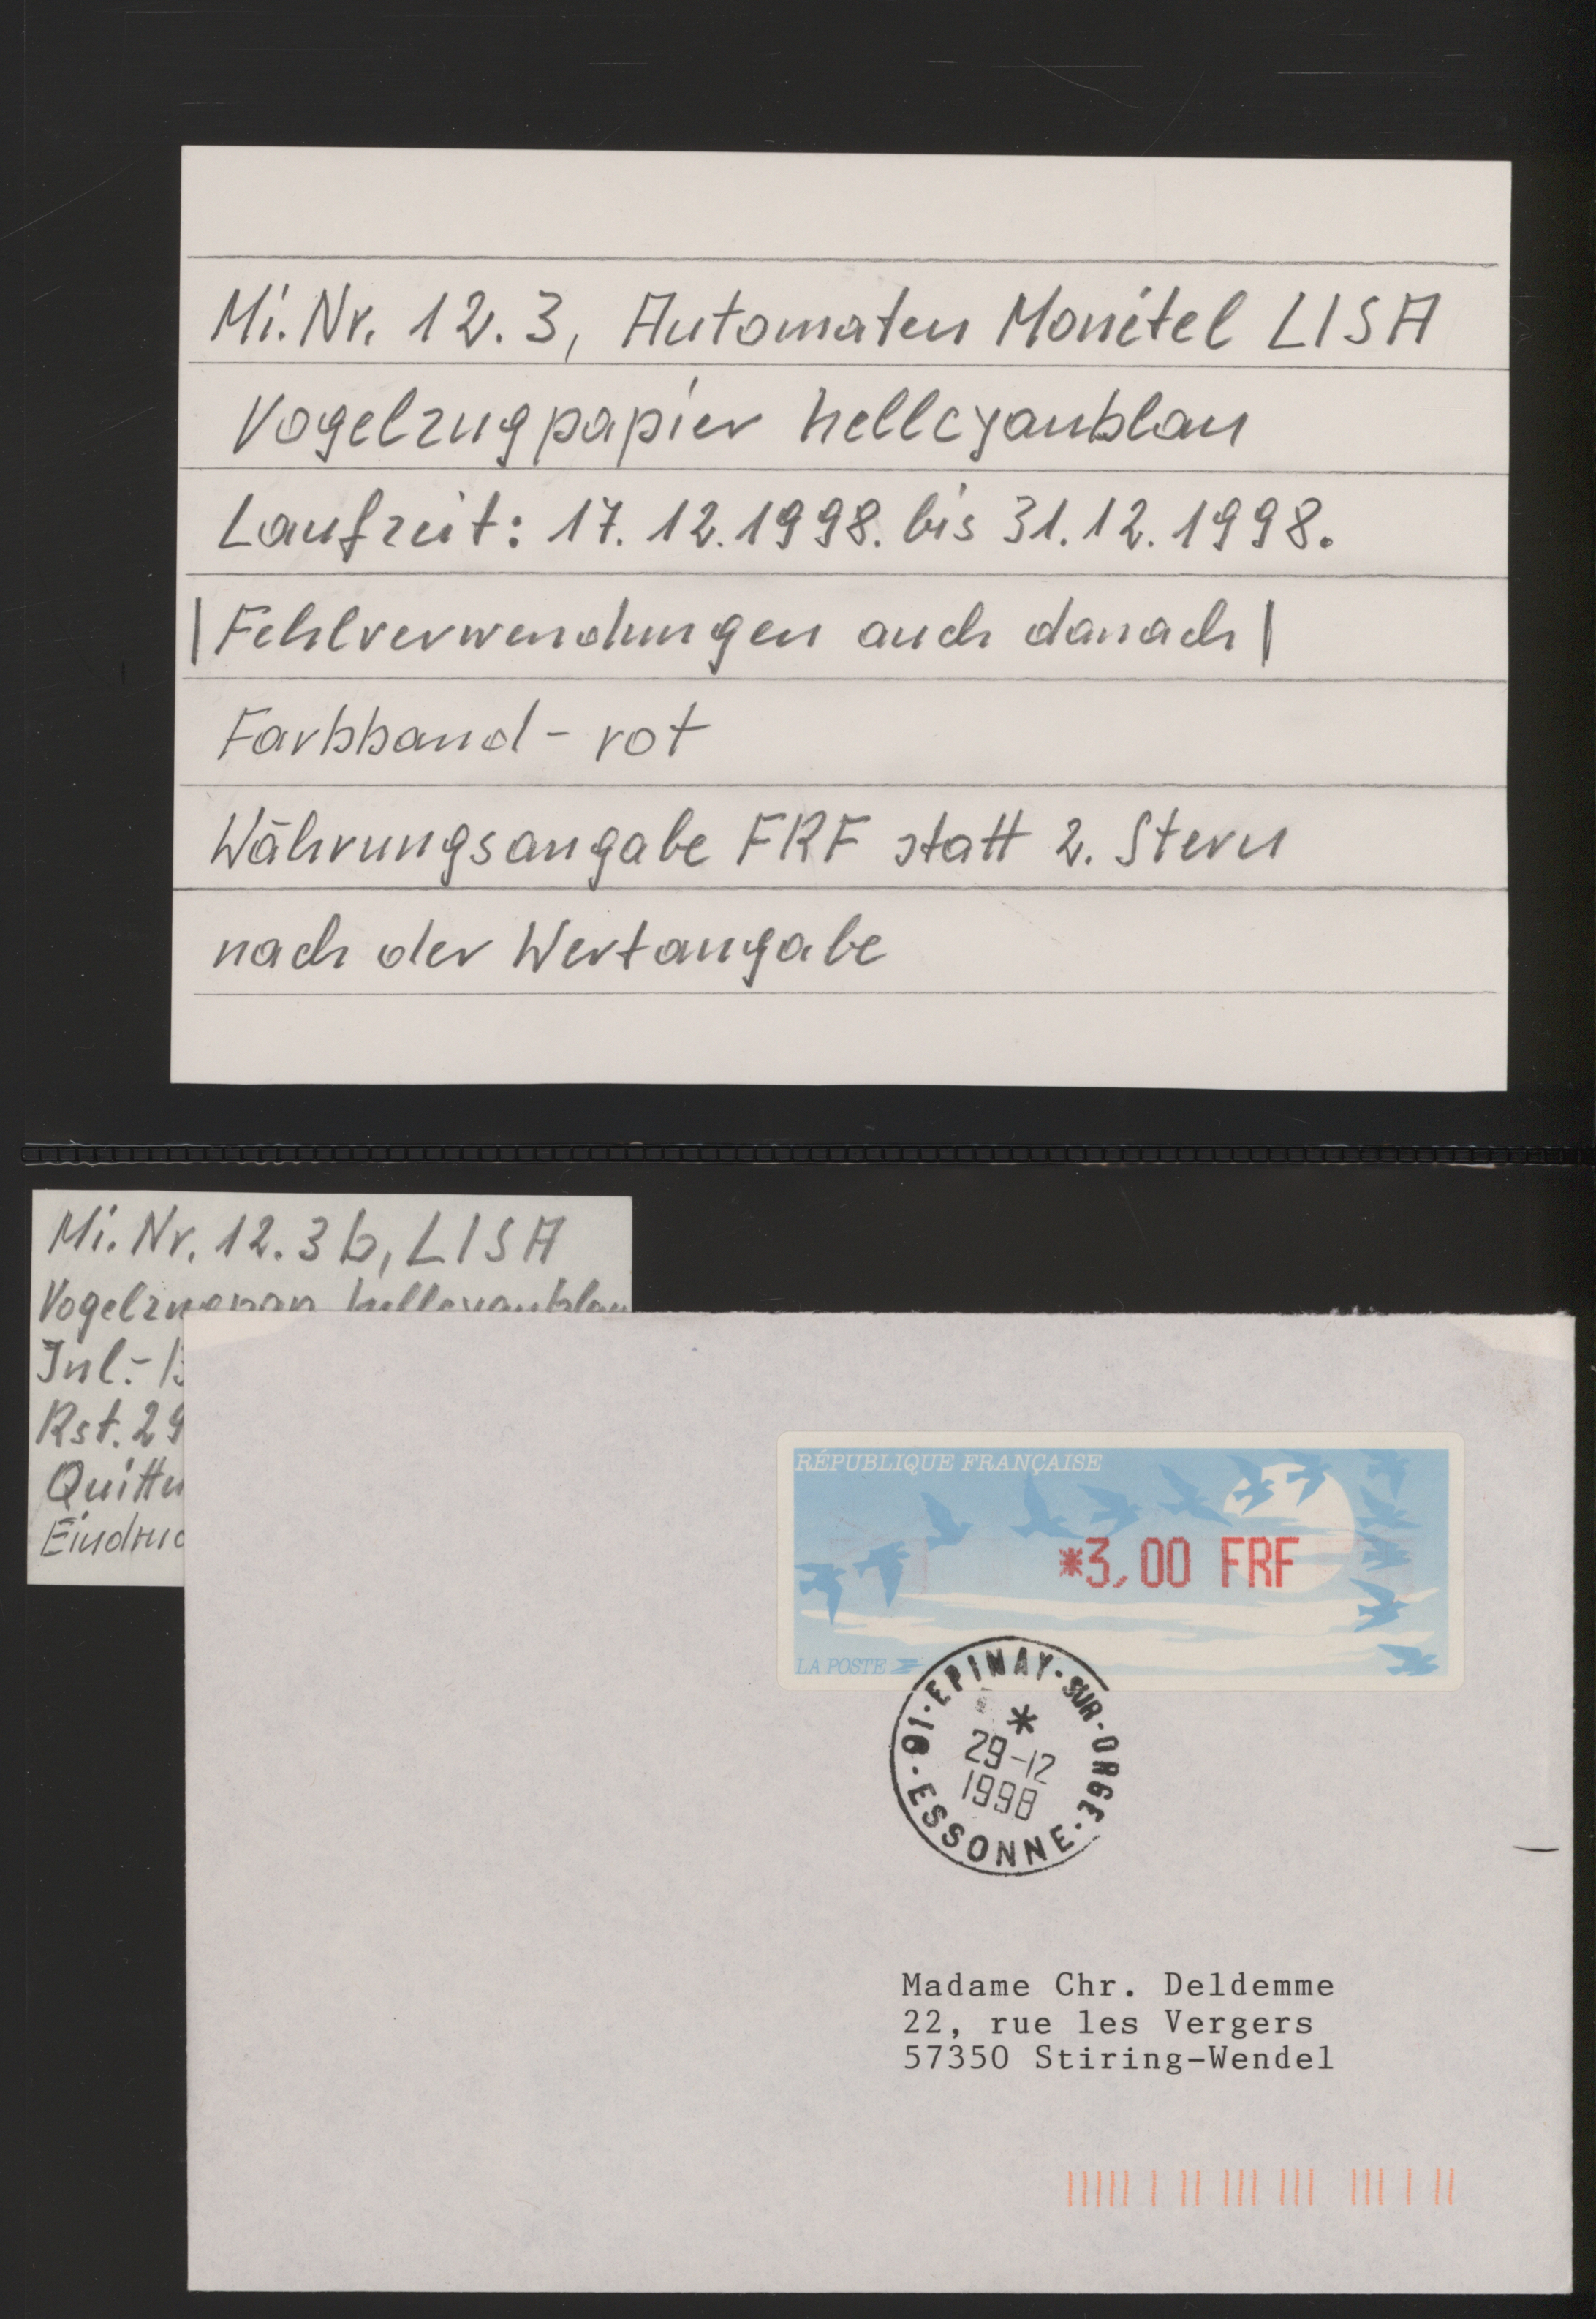 Mi. Nr. 12.3, Automaten Monétel LISA
Vogelzugpapier hellcyanblau
Laufzeit: 17.12.1998. bis 31.12.1998.
|Fehlverwendungen auch danach|
Farbband - rot
Währungsangabe FRF statt 2. Stern
nach der Wertangabe
Mi. Nr. 12.3b, LISA
Vogelzugpap hellcyanblau
Inl.-
Rst. 29
RÉPUBLIQUE FRANÇAISE
*3,00 FRF
LA POSTE
91-EPINAY-SUR-ORGE
*
29-12
1998
ESSONNE
Madame Chr. Deldemme
22, rue les Vergers
57350 Stiring-Wendel